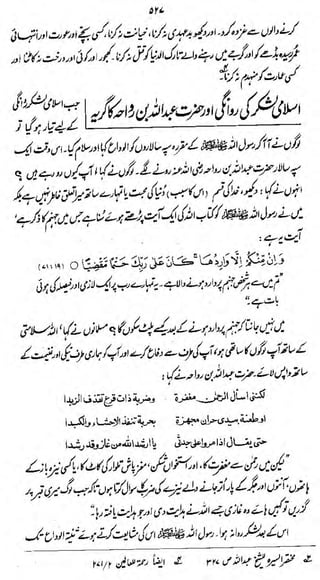 ۵۲۷
کرنے والوں سے غزوہ کرو۔ اور دیکھو بدعہدی نہ کرنا، خیانت نہ کرنا، کسی بچے اور عورت اور انتہائی
عمر رسیدہ بڈھے کو اور گرجے میں رہنے والے تارک الدنیا کو قتل نہ کرنا۔ کھجور اور کوئی اور درخت نہ کاٹنا اور
کسی عمارت کو منہدم نہ کرنا۔
اسلامی لشکر کی روانگی اور حضرت عبداللہ بن رواحہ کا گریہ
جب اسلامی لشکر روانگی
کے لیے تیار ہو گیا تو
لوگوں نے آ آ کر رسول اللہ ﷺ کے مقررہ سپہ سالاروں کو الوداع کہا اور سلام کیا۔ اس وقت ایک
سپہ سالار حضرت عبداللہ بن رواحہ رضی اللہ عنہ رونے لگے۔ لوگوں نے کہا، آپ کیوں رو رہے ہیں؟
انہوں نے کہا: دیکھو، خدا کی قسم (اس کا سبب) دنیا کی محبت یا تمہارے ساتھ میرا تعلق خاطر نہیں ہے بلکہ
میں نے رسول اللہ ﷺ کو کتاب اللہ کی ایک آیت پڑھتے ہوئے سنا ہے جس میں جہنم کا ذکر ہے،
آیت یہ ہے:
وَإِنْ مِنْكُمْ إِلَّا وَارِدُهَا ۚ كَانَ عَلَىٰ رَبِّكَ حَتْمًا مَقْضِيًّا ○ (۷۱:۱۹)
"تم میں سے ہر شخص جہنم پر وارد ہونے والا ہے۔ یہ تمہارے رب پر ایک لازمی اور فیصلہ کی ہوئی
بات ہے۔"
میں نہیں جانتا کہ جہنم پر وارد ہونے کے بعد کیسے پلٹ سکوں گا؟ مسلمانوں نے کہا: اللہ سلامتی
کے ساتھ آپ لوگوں کا ساتھی ہو، آپ کی طرف سے دفاع کرے اور آپ کو ہماری طرف نیکی اور غنیمت کے
ساتھ واپس لائے۔ حضرت عبداللہ بن رواحہ نے کہا:
لکننی أسأل الرحمٰن مغفرة وضربة ذات قرع تقذف الزبدا
أو طعنة بیدی حران مجهزة بحربة تنفذ الأحشاء والکبدا
حتی یقال إذا مروا علی جدثی یا أرشد الله من غاز وقد رشدا
"لیکن میں رحمٰن سے مغفرت کا، اور استخواں شکن، مغز پاش تلوار کی کاٹ کا، یا کسی نیزہ باز کے
ہاتھوں، آنتوں اور جگر کے پار اتر جانے والے نیزے کی ضرب کا سوال کرتا ہوں تاکہ جب لوگ میری قبر پر
گزریں تو کہیں ہائے وہ غازی جسے اللہ نے ہدایت دی اور جو ہدایت یافتہ رہا۔"
اس کے بعد لشکر روانہ ہوا۔ رسول اللہ ﷺ اس کی مشایعت کرتے ہوئے ثنیۃ الوداع تک
مختصر السیرہ للشیخ عبداللہ ص ۳۲۷ ایضاً رحمۃ للعالمین ۲/۲۷۱